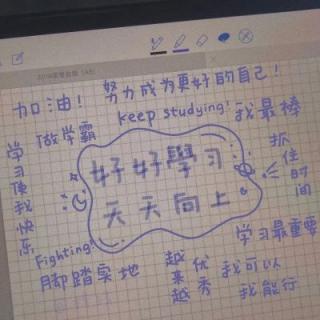 加油！ 努力成为更好的自己！
keep studying!
我最棒
做学霸
学习使我快乐
好好學习
天天向上
抓住时间
Fighting!
脚踏实地
越来越优秀
学习最重要
我可以
我能行